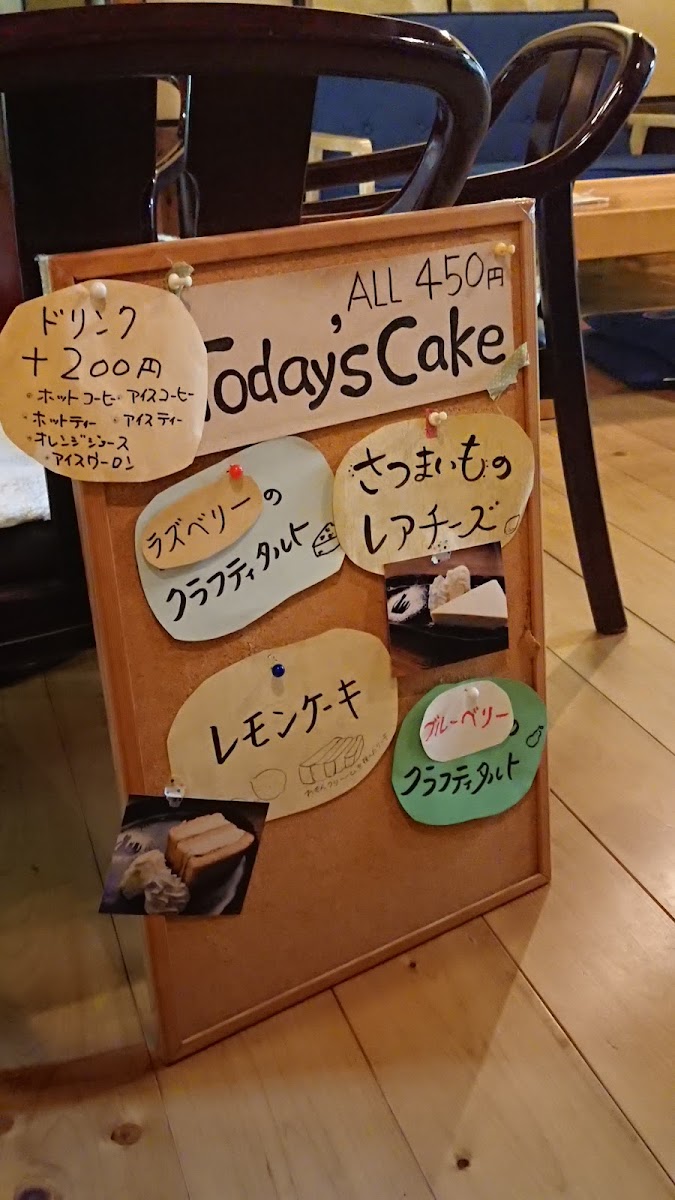 ALL 450円
Today's Cake
ドリンク
+200円
・ホットコーヒー ・アイスコーヒー
・ホットティー ・アイスティー
・オレンジジュース
・アイスウーロン
ラズベリーの
クラフティタルト
さつまいもの
レアチーズ
レモンケーキ
ブルーベリーの
クラフティタルト